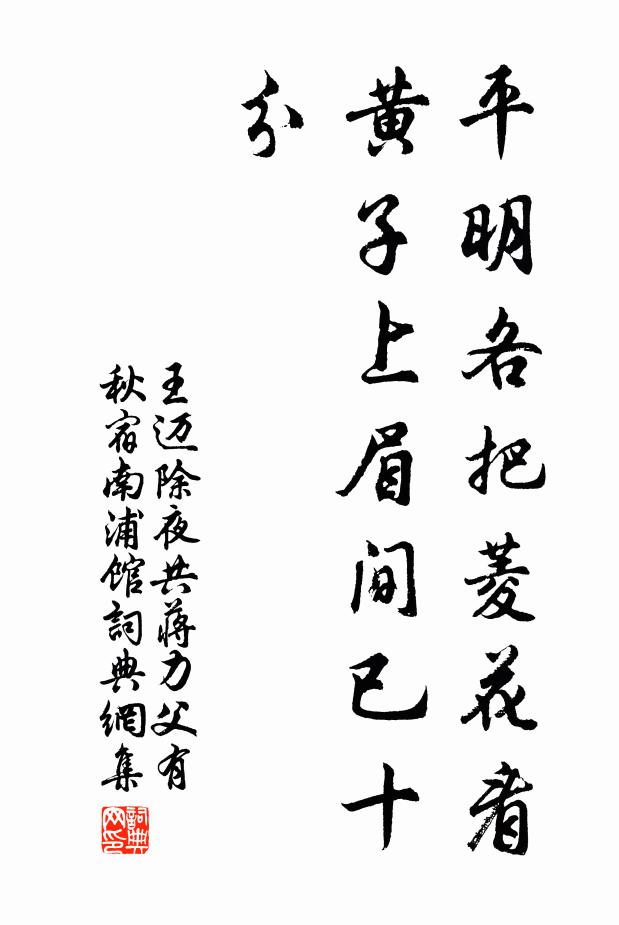 平明各把菱花看
黃子上眉間已十
分
王迈除夜共蔣力父有
秋宿南浦館詞典網集
詞典
网印